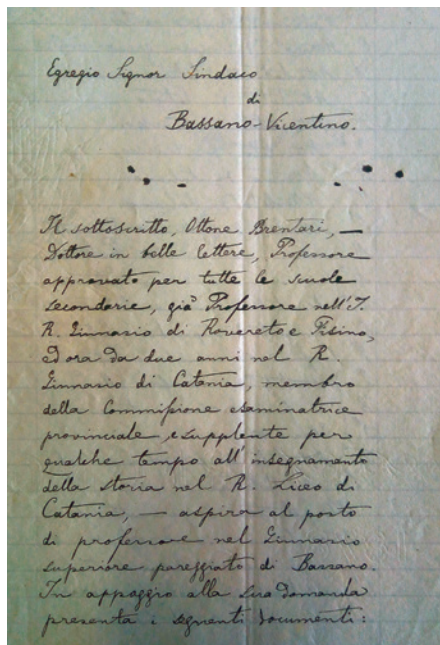 Egregio Signor Sindaco
di
Bassano-Vicentino.
Il sottoscritto, Ottone Brentari, —
Dottore in belle lettere, Professore
approvato per tutte le scuole
secondarie, già Professore nell'I.
R. Ginnasio di Rovereto e Pisino,
ed ora da due anni nel R.
Ginnasio di Catania, membro
della Commissione esaminatrice
provinciale, e supplente per
qualche tempo all'insegnamento
della storia nel R. Liceo di
Catania, — aspira al posto
di professore nel Ginnasio
superiore pareggiato di Bassano.
In appoggio alla sua domanda
presenta i seguenti documenti: